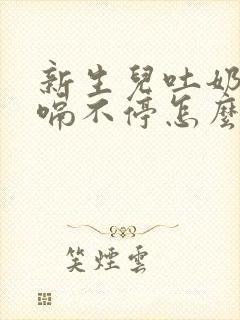 新生兒吐奶
嗝不停怎麼
笑煙雲